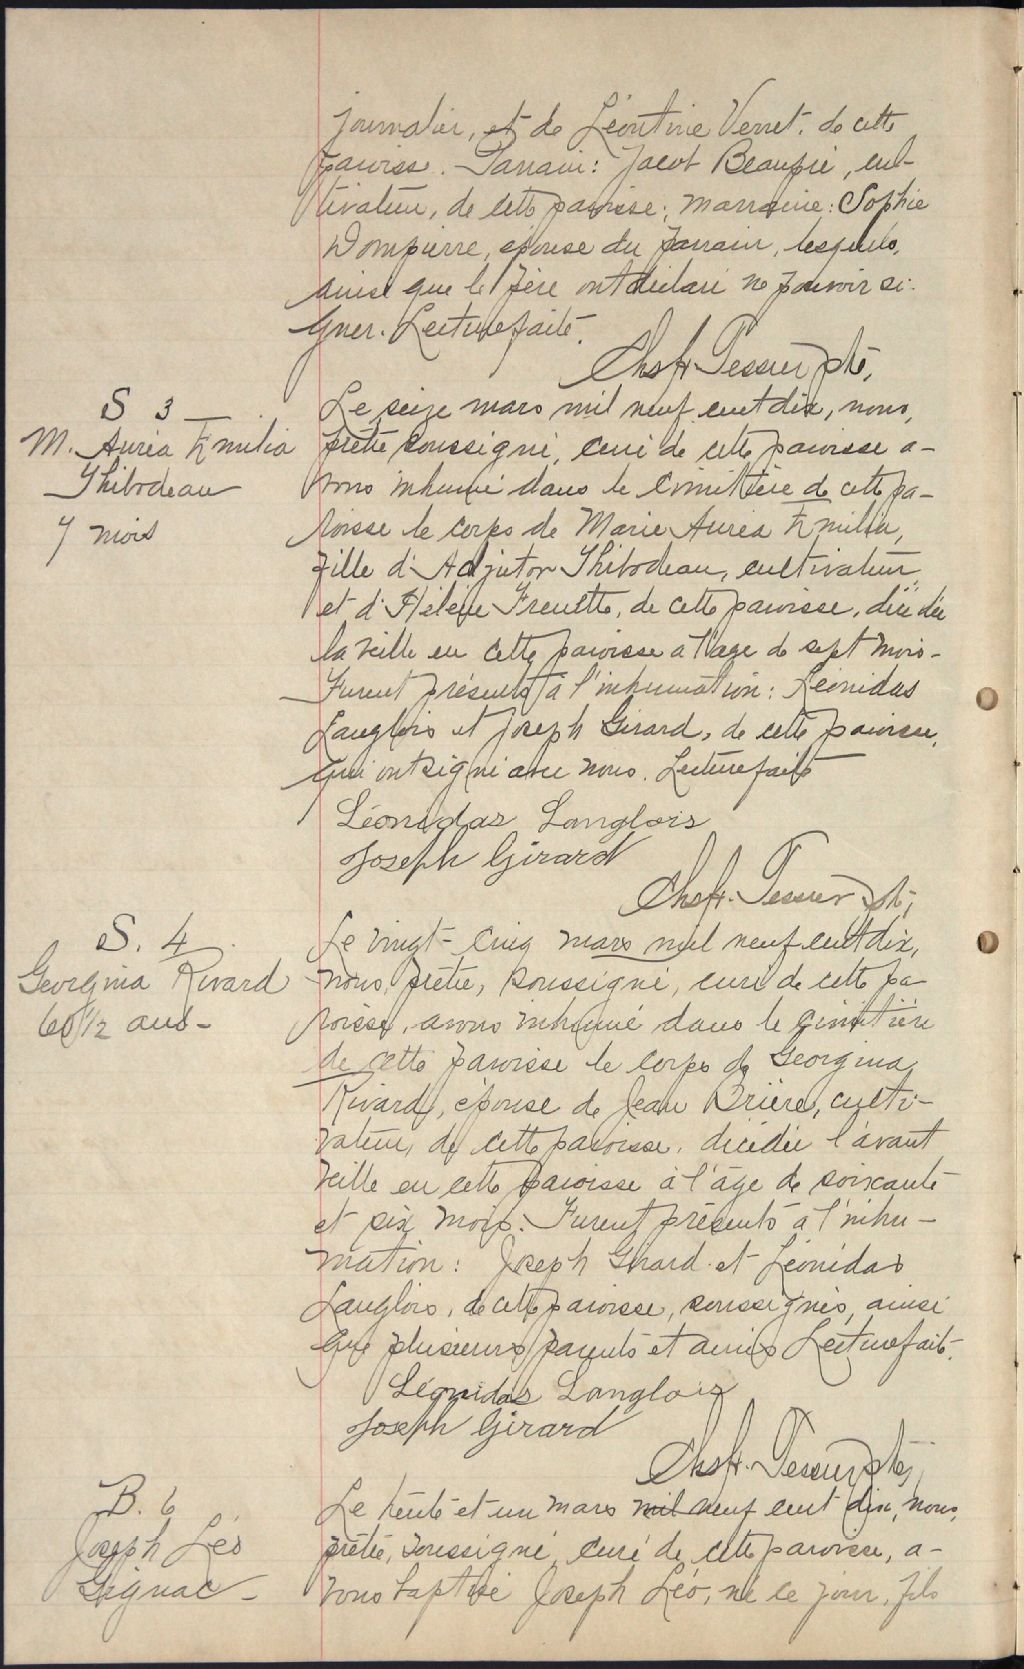 journalier, et de Léontine Verret, de cette
paroisse. Parrain: Jacob Beaupré, cul-
tivateur, de cette paroisse; marraine: Sophie
Dompierre, épouse du parrain, lesquels,
ainsi que le père ont déclaré ne pouvoir si-
gner. Lecture faite.
Chs H. Tessier ptre,
S 3
M. Auréa Emilia
Thibodeau
7 mois
Le seize mars mil neuf cent dix, nous,
prêtre soussigné, curé de cette paroisse a-
vons inhumé dans le cimetière de cette pa-
roisse le corps de Marie Auréa Emilia,
fille d'Adjutor Thibodeau, cultivateur,
et d'Hélène Frenette, de cette paroisse, décédée
la veille en cette paroisse à l'âge de sept mois-
Furent présents à l'inhumation: Léonidas
Langlois et Joseph Girard, de cette paroisse,
qui ont signé avec nous. Lecture faite
Léonidas Langlois
Joseph Girard
Chs H. Tessier ptre,
S. 4
Georgina Rivard
60 1/2 ans-
Le vingt-cinq mars mil neuf cent dix,
nous, prêtre, soussigné, curé de cette pa-
roisse, avons inhumé dans le cimetière
de cette paroisse le corps de Georgina
Rivard, épouse de Jean Brière, culti-
vateur, de cette paroisse, décédée l'avant
veille en cette paroisse à l'âge de soixante
et six mois. Furent présents à l'inhu-
mation: Joseph Girard et Léonidas
Langlois, de cette paroisse, soussignés, ainsi
que plusieurs parents et amis Lecture faite.
Léonidas Langlois
Joseph Girard
Chs H. Tessier ptre,
B. 6
Joseph Léo
Gignac-
Le trente et un mars mil neuf cent dix, nous,
prêtre, soussigné, curé de cette paroisse, a-
vons baptisé Joseph Léo, né ce jour, fils